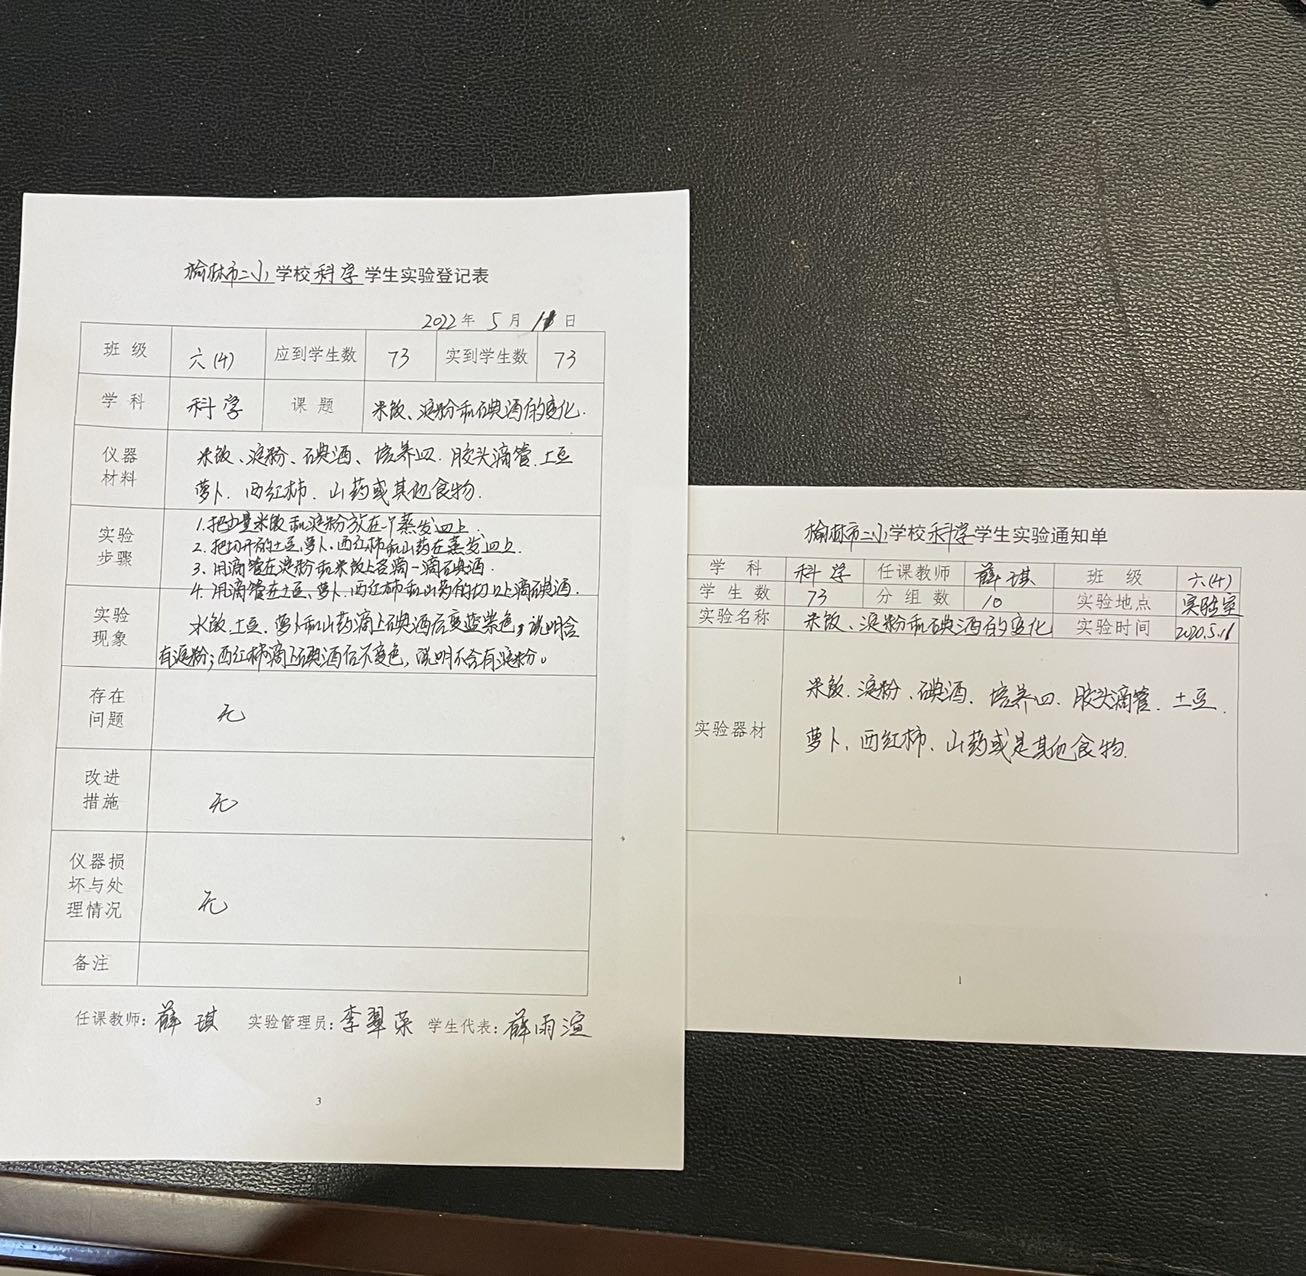 榆林市二小学校科学学生实验登记表
2022年 5月 日
班级 六(4) 应到学生数 73 实到学生数 73
学科 科学 课题 米饭、淀粉和碘酒的变化.
仪器材料
米饭、淀粉、碘酒、培养皿.胶头滴管.土豆
萝卜.西红柿.山药或其他食物.
实验步骤
1.把少量米饭和淀粉放在个蒸发皿上.
2.把切开的土豆,萝卜,西红柿和山药在蒸发皿上.
3.用滴管在淀粉和米饭上各滴一滴碘酒.
4.用滴管在土豆、萝卜、西红柿和山药的切口上滴碘酒.
实验现象
米饭.土豆、萝卜和山药滴上碘酒后变蓝紫色,说明含
有淀粉;西红柿滴上碘酒后不变色,说明不含有淀粉。
存在问题
无
改进措施
无
仪器损坏与处理情况
无
备注
任课教师:薛琪 实验管理员:李翠荣 学生代表:薛雨渲
3
榆林市二小学校科学学生实验通知单
学科 科学 任课教师 薛琪 班级 六(4)
学生数 73 分组数 10 实验地点 实验室
实验名称 米饭、淀粉和碘酒的变化 实验时间 2020.5.16
实验器材
米饭.淀粉、碘酒.培养皿.胶头滴管.土豆.
萝卜、西红柿、山药或是其他食物.
1